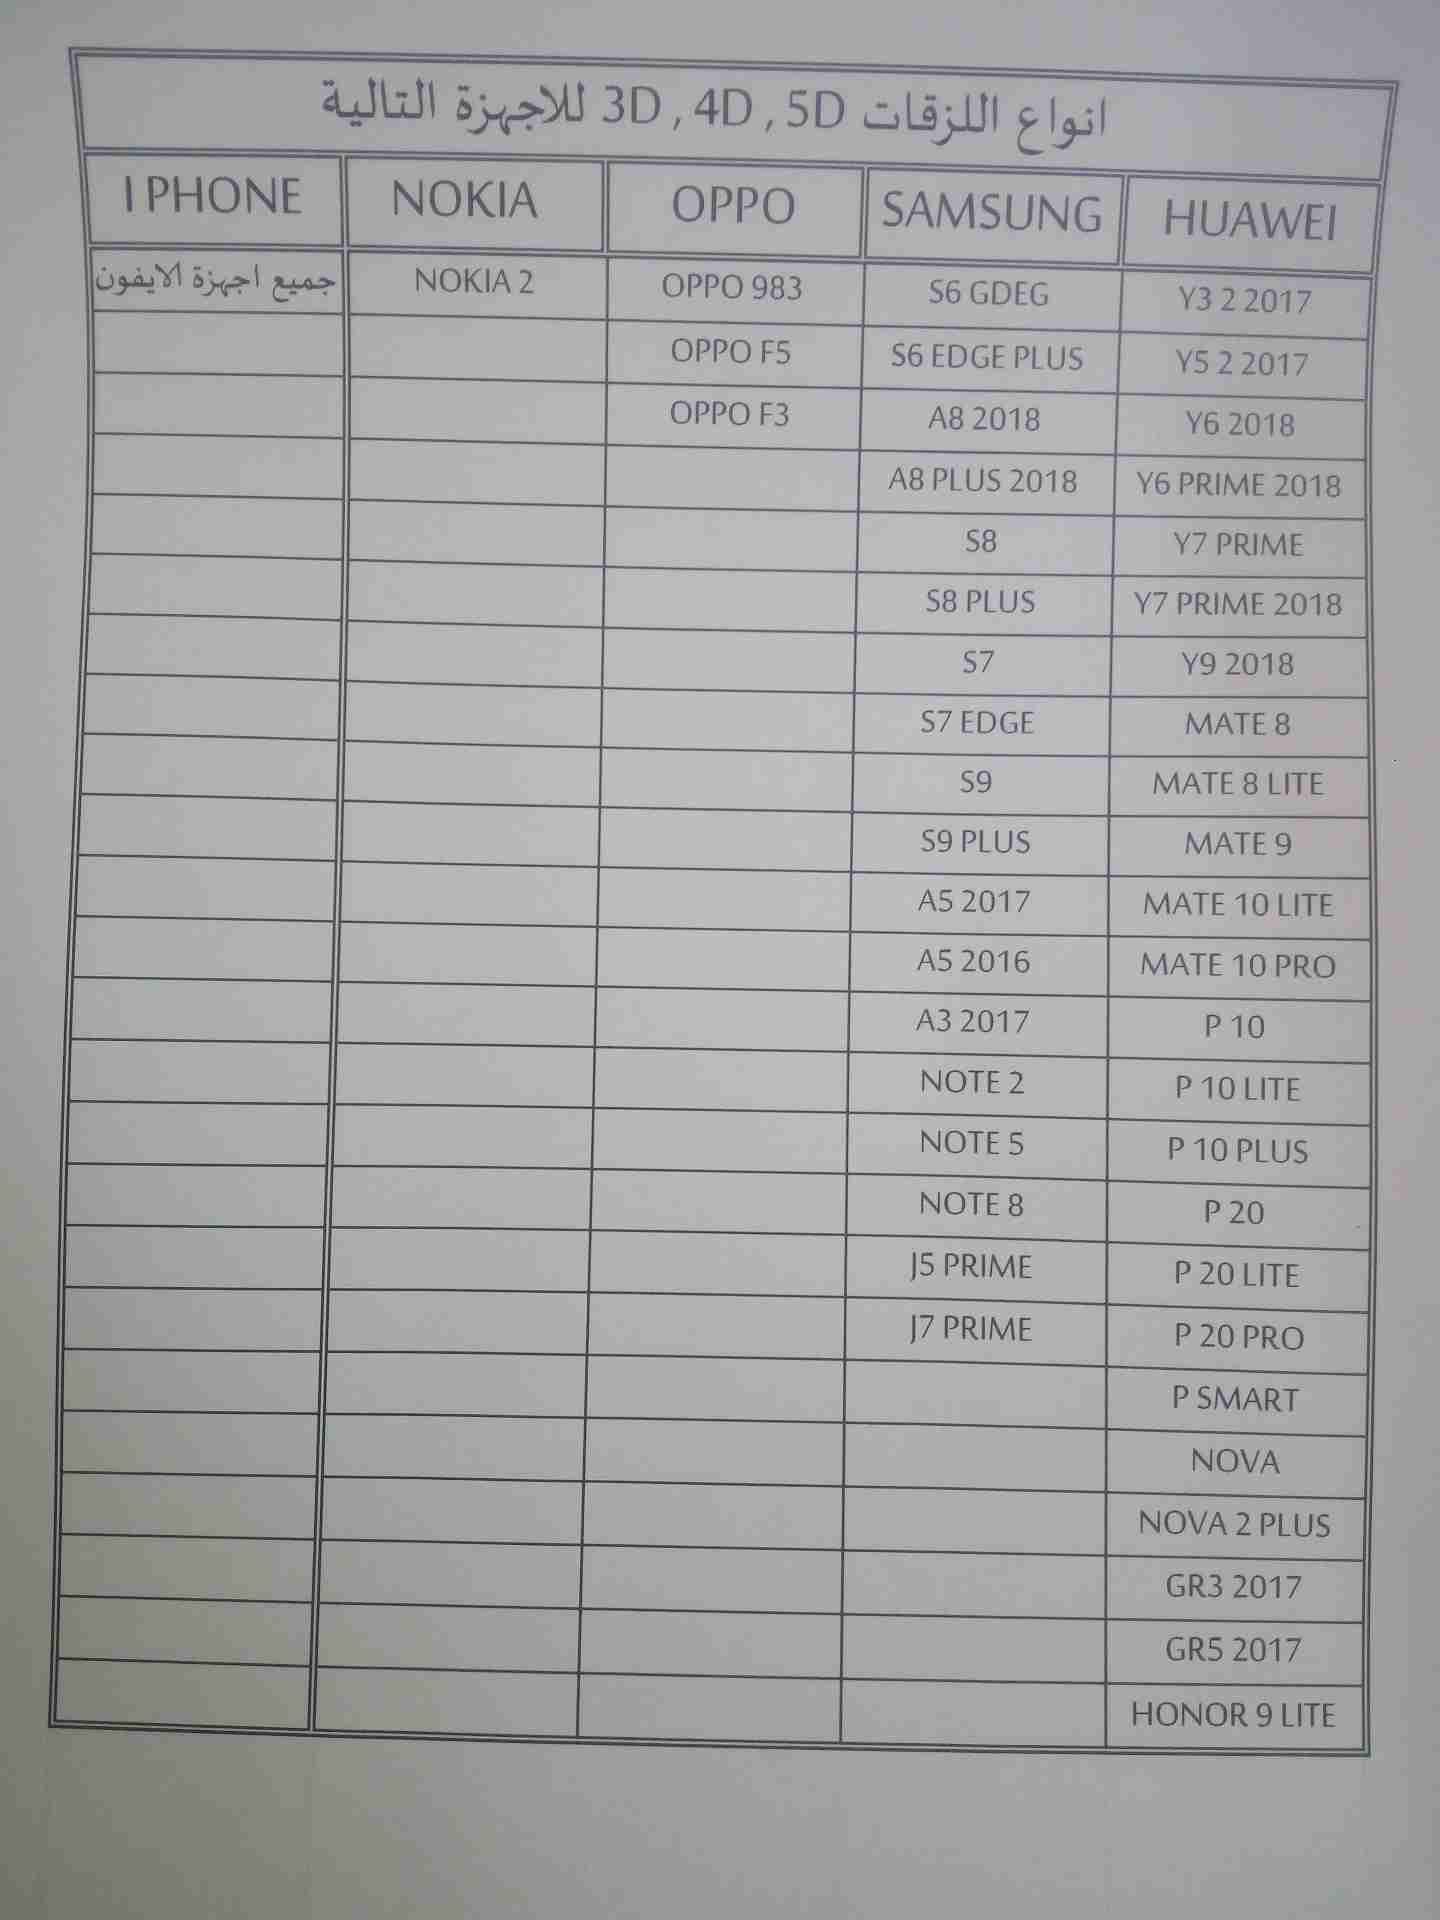 انواع اللزقات 3D , 4D , 5D للاجهزة التالية
I PHONE NOKIA OPPO SAMSUNG HUAWEI
جميع اجهزة الايفون NOKIA 2 OPPO 983 S6 GDEG Y3 2 2017
OPPO F5 S6 EDGE PLUS Y5 2 2017
OPPO F3 A8 2018 Y6 2018
A8 PLUS 2018 Y6 PRIME 2018
S8 Y7 PRIME
S8 PLUS Y7 PRIME 2018
S7 Y9 2018
S7 EDGE MATE 8
S9 MATE 8 LITE
S9 PLUS MATE 9
A5 2017 MATE 10 LITE
A5 2016 MATE 10 PRO
A3 2017 P 10
NOTE 2 P 10 LITE
NOTE 5 P 10 PLUS
NOTE 8 P 20
J5 PRIME P 20 LITE
J7 PRIME P 20 PRO
P SMART
NOVA
NOVA 2 PLUS
GR3 2017
GR5 2017
HONOR 9 LITE